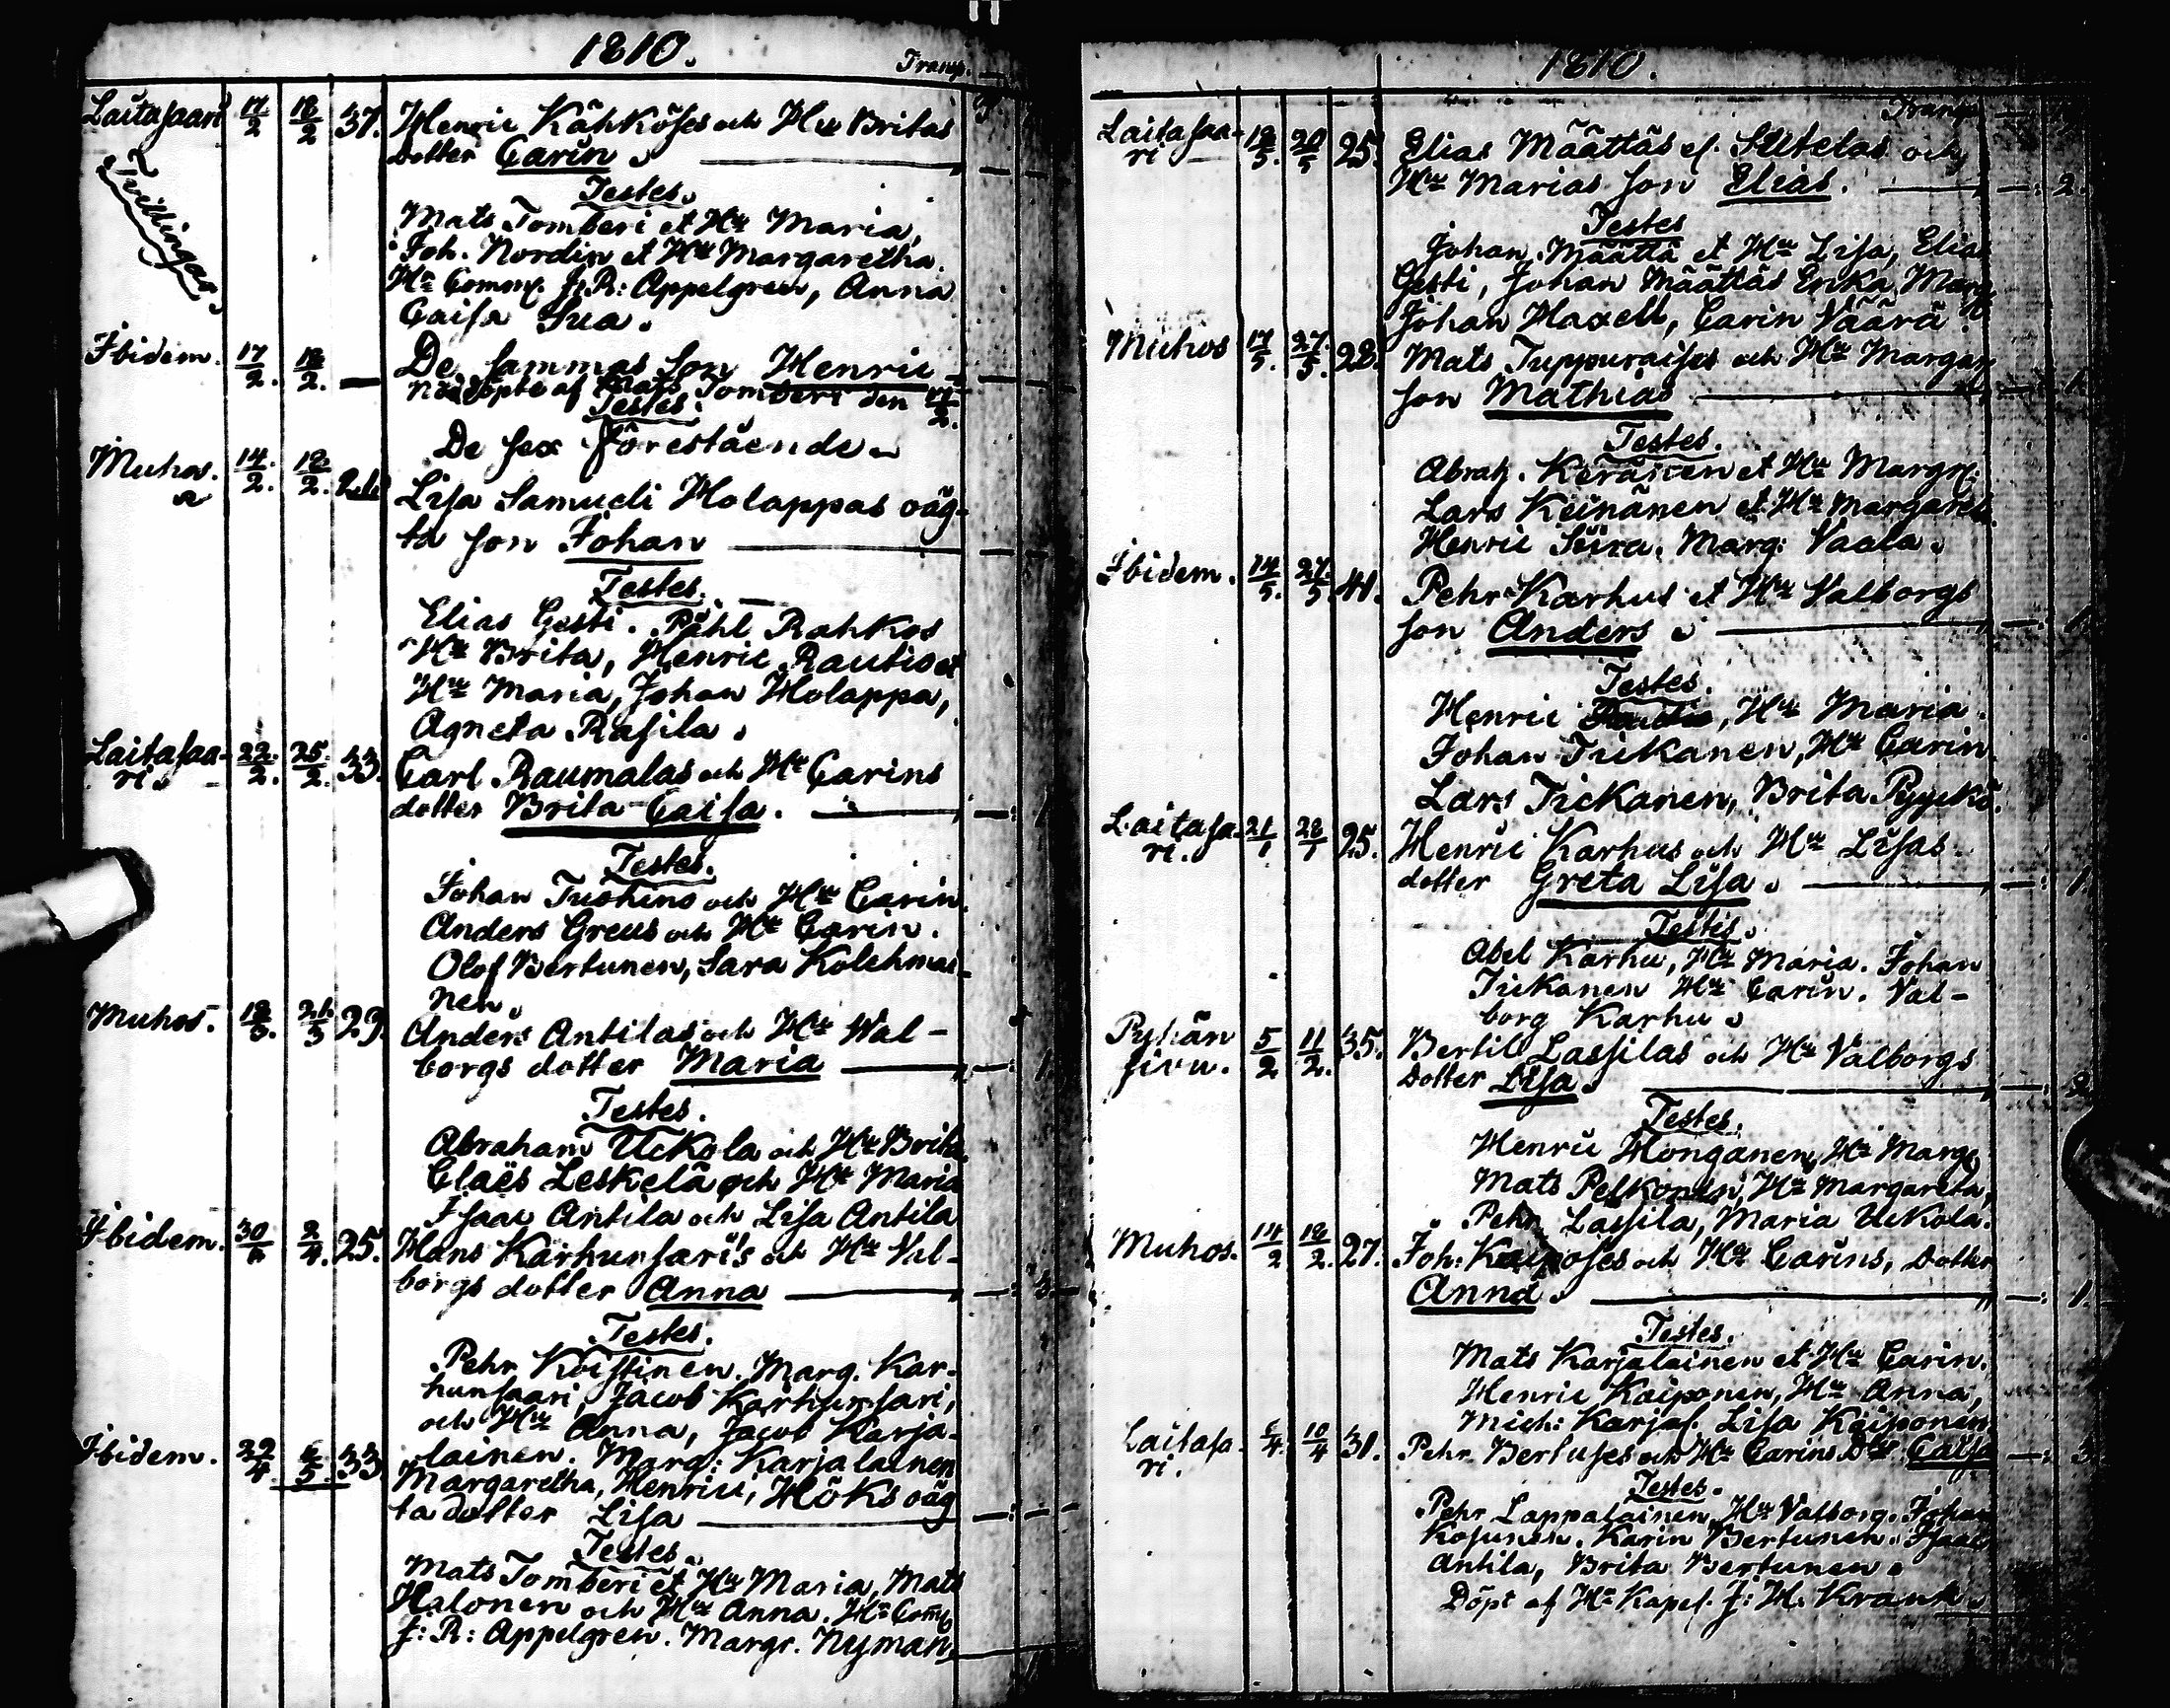 1810.
Transp.
Laitasaari 17/2 18/2 37. Henric Kähköses och Hu Britas
dotter Carin
Tvillingar.
Testes.
Mats Tomberi et Hu Maria,
Joh. Nordin et Hu Margaretha.
Hr Comm. J. R: Appelgren, Anna
Caisa Sua.
Ibidem. 17/2. 18/2. — De sammas Son Henric
Nöddöpte af Mats Tomberi den 17/2.
Testes.
De sex förestående
Muhos. 14/2. 18/2. Lisa Samueli Holappas oäg-
ta son Johan
Testes.
Elias Gesti. Påhl Rahkos
Hu Brita, Henric Rautio et
Hu Maria, Johan Holappa,
Agneta Rasila.
Laitasaa- 22/2. 25/2. 33. Carl Raumalas och Hu Carins
ri. dotter Brita Caisa. 1
Testes.
Johan Tushins och Hu Carin.
Anders Greus och Hu Carin.
Olof Bertunen, Sara Kolehmai-
nen.
Muhos. 18/3. 21/3 29. Anders Antilas och Hu Wal-
borgs dotter Maria 1.
Testes.
Abraham Uckola och Hu Brita.
Claës Leskelä och Hu Maria
Isaac Antila och Lisa Antila
Ibidem. 2/4. 25. Hans Karhunsari's och Hu Val-
borgs dotter Anna
Testes.
Pehr Koistinen. Marg. Kar-
hunsaari, Jacob Karhunsari,
och Hu Anna, Jacob Karja-
lainen. Marg: Karjalainen
Ibidem. 29/4 33 Margaretha, Henrici, Höks oäg
ta dotter Lisa
Testes.
Mats Tomberi et Hu Maria, Mats
Halonen och Hu Anna. Hr Comm
J: R: Appelgren. Margr. Nyman
1810.
Transp
Laitasaa- 18/5. 20/5 25. Elias Määttäs el. Sutelas och
ri Hu Marias son Elias. 2.
Testes
Johan Määttä et Hu Lisa, Elias
Gesti, Johan Määttäs Enka Marg.
Johan Haxell, Carin Väärä
Muhos 17/5. 27/5. 28. Mats Tuppuraises och Hu Margar
son Mathias
Testes.
Abrah. Keränen et Hu Margr.
Lars Keinänen et Hu Margaret.
Henric Soira. Marg: Vaala.
Ibidem. 14/5. 27/5 41. Pehr Karhus et Hu Valborgs
son Anders
Testes.
Henric Rautio, Hu Maria.
Johan Tickanen, Hu Carin
Lars Tickanen, Brita Pyyckö.
Laitasa- 21/1 28/1 25. Henric Karhus och Hu Lisas.
ri. dotter Greta Lisa. 1
Testes.
Abel Karhu, Hu Maria. Johan
Tickanen Hu Carin. Val-
borg Karhu
Pyhän 5/2 11/2. 35. Bertil Lassilas och Hu Valborgs
sivu. Dotter Lisa. 2
Testes.
Henric Honganen, Hu Marg.
Mats Pelkonen, Hu Margareta,
Pehr Lassila, Maria Uckola.
Muhos. 14/2 18/2. 27. Joh: Kaiposes och Hu Carins, Dotter
Anna. 1.
Testes.
Mats Karjalainen et Hu Carin.
Henric Kaiponen, Hu Anna,
Mich: Karjal. Lisa Kaiponen
Laitasa- 10/4 31. Pehr Bertuses och Hu Carins Dr Caisa 3
ri.
Testes.
Pehr Lappalainen, Hu Valborg. Johan
Kosunen. Karin Bertunen. Isaac
Antila, Brita Bertunen.
Döpt af Hr Kapel. J: H. Krank.